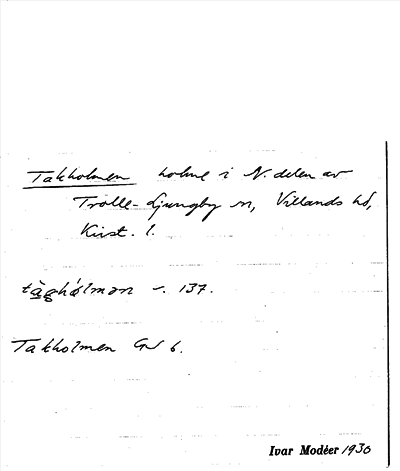 Takholmen holme i N. delen av
Trolle-Ljungby sn, Villands hd,
Krist. l.
tàghólmən 137.
Takholmen GV 6.
Ivar Modéer 1930